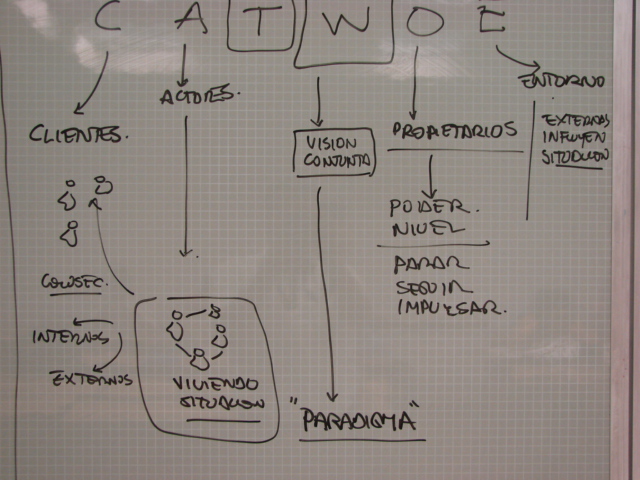 C A T W O E
CLIENTES.
ACTORES.
VISION
CONJUNTA
PROPIETARIOS
ENTORNO
EXTERNAS
INFLUYEN
SITUACION
PODER.
NIVEL
PARAR
SEGUIR
IMPULSAR.
INTERNOS
EXTERNOS
VIVIENDO
SITUACION
"PARADIGMA"